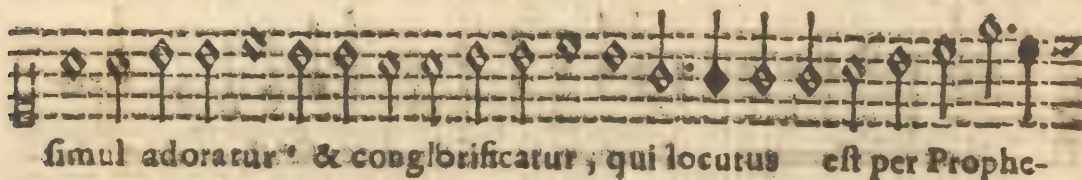 ſimul adoratur & conglorificatur, qui locutus eſt per Prophe-